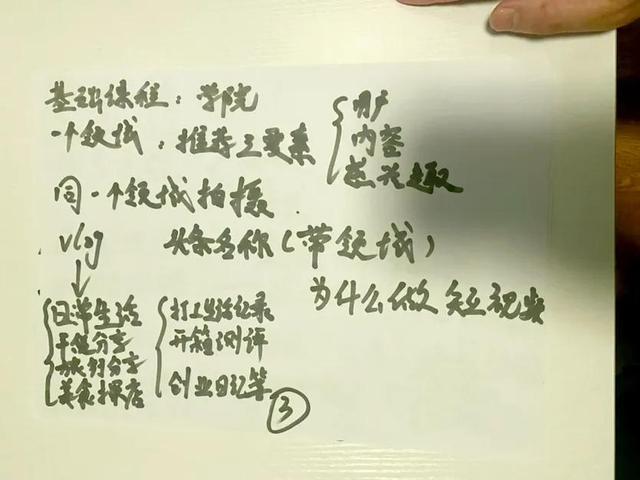 基础课程：学院
一个领域：推荐三要素
用户
内容
感兴趣
同一个领域拍摄
vlog 头条名称（带领域）
为什么做短视频
日常生活
干货分享
旅行分享
美食探店
打工生活记录
开箱测评
创业日记等
③